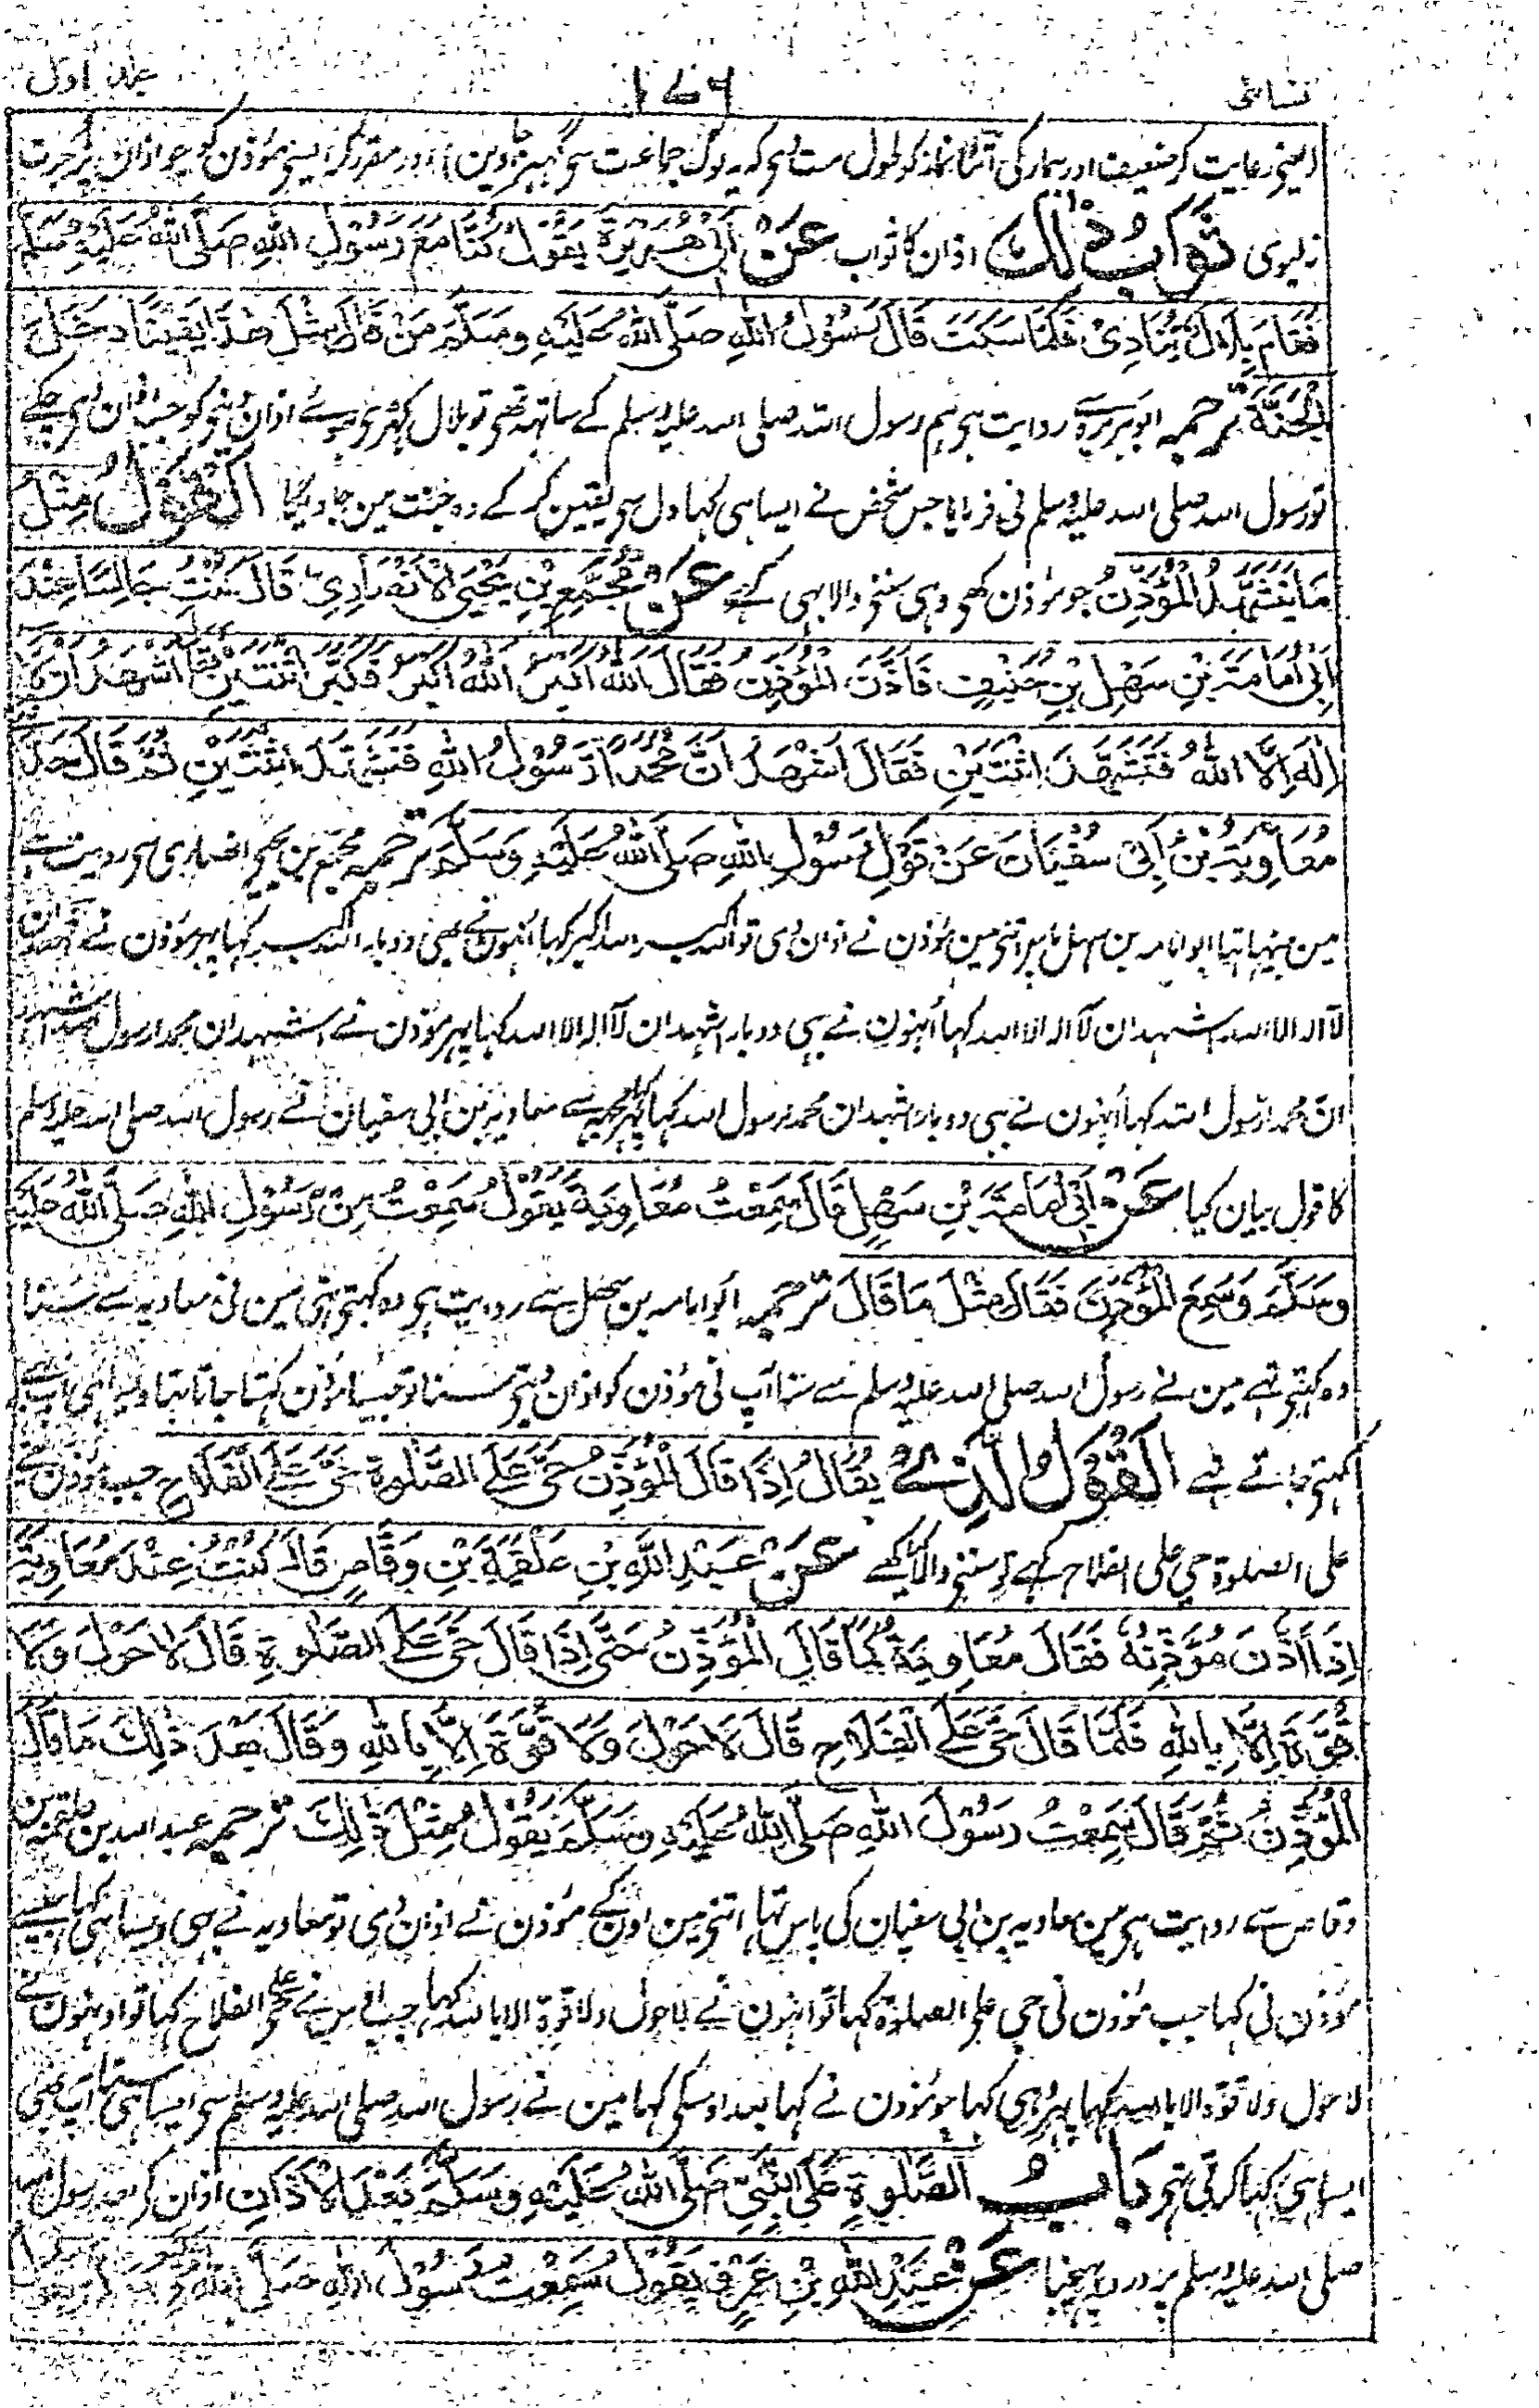 نسائی ۱۷۶ جلد اول
(یعنی رعایت کر ضعیف اور بیمار کی اتنا نماز کو طول مت دی کہ یہ لوگ جماعت سی گھبرا دین) اور مقرر کر ایسی مؤذن کو جو اذان پر اجرت
نہ لیوی ثَوَابُ ذٰلِكَ اذان کا ثواب عَنْ اَبِیْ هُرَیْرَةَ یَقُوْلُ کُنَّا مَعَ رَسُوْلِ اللّٰهِ صَلَّی اللّٰهُ عَلَیْهِ وَسَلَّمَ
فَقَامَ بِلَالٌ یُّنَادِیْ فَلَمَّا سَکَتَ قَالَ رَسُوْلُ اللّٰهِ صَلَّی اللّٰهُ عَلَیْهِ وَسَلَّمَ مَنْ قَالَ مِثْلَ هٰذَا یَقِیْنًا دَخَلَ
الْجَنَّةَ ترجمہ ابو ہریرہ سے روایت ہی ہم رسول اللہ صلی اللہ علیہ وسلم کے ساتھ تھی تو بلال کھڑی ہوئے اذان دینی کو جب اذان دی چکے
تو رسول اللہ صلی اللہ علیہ وسلم نی فرمایا جس شخص نے ایسا ہی کہا دل سی یقین کر کے وہ جنت مین جاویگا اَلْقَوْلُ مِثْلَ
مَا یَتَشَهَّدُ الْمُؤَذِّنُ جو مؤذن کہی وہی سننی والا بہی کہے عَنْ مُجَمِّعِ بْنِ یَحْیَی الْاَنْصَارِیِّ قَالَ کُنْتُ جَالِسًا عِنْدَ
اَبِیْ اُمَامَةَ بْنِ سَهْلِ بْنِ حُنَیْفٍ فَاَذَّنَ الْمُؤَذِّنُ فَقَالَ اللّٰهُ اَکْبَرُ اللّٰهُ اَکْبَرُ فَکَبَّرَ اثْنَتَیْنِ فَقَالَ اَشْهَدُ اَنْ لَّا
اِلٰهَ اِلَّا اللّٰهُ فَتَشَهَّدَ اثْنَتَیْنِ فَقَالَ اَشْهَدُ اَنَّ مُحَمَّدًا رَّسُوْلُ اللّٰهِ فَتَشَهَّدَ اثْنَتَیْنِ ثُمَّ قَالَ حَدَّثَنِیْ
مُعَاوِیَةُ بْنُ اَبِیْ سُفْیَانَ عَنْ قَوْلِ رَسُوْلِ اللّٰهِ صَلَّی اللّٰهُ عَلَیْهِ وَسَلَّمَ ترجمہ مجمع بن یحیی انصاری سی روایت ہے
مین بیٹھا تہا ابو امامہ بن سہل پاس اتنی مین مؤذن نے اذان دی تو اللہ اکبر اللہ اکبر کہا انہون نے بھی دو بار اللہ اکبر کہا پہر مؤذن نے اشہد ان
لا الہ الا اللہ اشہد ان لا الہ الا اللہ کہا انہون نے بہی دو بار اشہد ان لا الہ الا اللہ کہا پہر مؤذن نے اشہد ان محمدا رسول اللہ اشہد
ان محمدا رسول اللہ کہا انہون نے بہی دو بار اشہد ان محمدا رسول اللہ کہا پہر کہا مجھ سے معاویہ بن ابی سفیان نے رسول اللہ صلی اللہ علیہ وسلم
کا قول بیان کیا عَنْ اَبِیْ اُمَامَةَ بْنِ سَهْلٍ قَالَ سَمِعْتُ مُعَاوِیَةَ یَقُوْلُ سَمِعْتُ مِنْ رَّسُوْلِ اللّٰهِ صَلَّی اللّٰهُ عَلَیْهِ
وَسَلَّمَ وَسَمِعَ الْمُؤَذِّنَ فَقَالَ مِثْلَ مَا قَالَ ترجمہ ابو امامہ بن سہل سے روایت ہی وہ کہتی تہی مین نی معاویہ سے سنا
وہ کہتی تہے مین نے رسول اللہ صلی اللہ علیہ وسلم سے سنا آپ نی مؤذن کو اذان دیتی سنا تو جیسا مؤذن کہتا جاتا تہا ویسا ہی آپ بہی
کہتی جاتے تہے اَلْقَوْلُ الَّذِیْ یُقَالُ اِذَا قَالَ الْمُؤَذِّنُ حَیَّ عَلَی الصَّلٰوةِ حَیَّ عَلَی الْفَلَاحِ جب مؤذن حی
علی الصلوۃ حی علی الفلاح کہے تو سننی والا کیا کہے عَنْ عَبْدِ اللّٰهِ بْنِ عَلْقَمَةَ بْنِ وَقَّاصٍ قَالَ کُنْتُ عِنْدَ مُعَاوِیَةَ
اِذَا اَذَّنَ مُؤَذِّنُهٗ فَقَالَ مُعَاوِیَةُ کَمَا قَالَ الْمُؤَذِّنُ حَتّٰی اِذَا قَالَ حَیَّ عَلَی الصَّلٰوةِ قَالَ لَا حَوْلَ وَلَا
قُوَّةَ اِلَّا بِاللّٰهِ فَلَمَّا قَالَ حَیَّ عَلَی الْفَلَاحِ قَالَ لَا حَوْلَ وَلَا قُوَّةَ اِلَّا بِاللّٰهِ وَقَالَ بَعْدَ ذٰلِكَ مَا قَالَ
الْمُؤَذِّنُ ثُمَّ قَالَ سَمِعْتُ رَسُوْلَ اللّٰهِ صَلَّی اللّٰهُ عَلَیْهِ وَسَلَّمَ یَقُوْلُ مِثْلَ ذٰلِكَ ترجمہ عبد اللہ بن علقمہ بن
وقاص سے روایت ہی مین معاویہ بن ابی سفیان کی پاس تہا اتنی مین اون کے مؤذن نے اذان دی تو معاویہ نے بہی ویسا ہی کہا جیسے
مؤذن نی کہا جب مؤذن نی حی علی الصلوۃ کہا تو انہون نے لا حول ولا قوۃ الا باللہ کہا جب اس نے حی علی الفلاح کہا تو اونہون نے
لا حول ولا قوۃ الا باللہ کہا پہر وہی کہا جو مؤذن نے کہا بعد اوسکی کہا مین نے رسول اللہ صلی اللہ علیہ وسلم سی ایسا ہی سنا آپ بہی
ایسا ہی کہا کرتی تہی بَابُ الصَّلٰوةِ عَلَی النَّبِیِّ صَلَّی اللّٰهُ عَلَیْهِ وَسَلَّمَ بَعْدَ الْاَذَانِ اذان کی بعد رسول اللہ
صلی اللہ علیہ وسلم پر درود بہیجنا عَنْ عَبْدِ اللّٰهِ بْنِ عَمْرٍو یَقُوْلُ سَمِعْتُ رَسُوْلَ اللّٰهِ صَلَّی اللّٰهُ